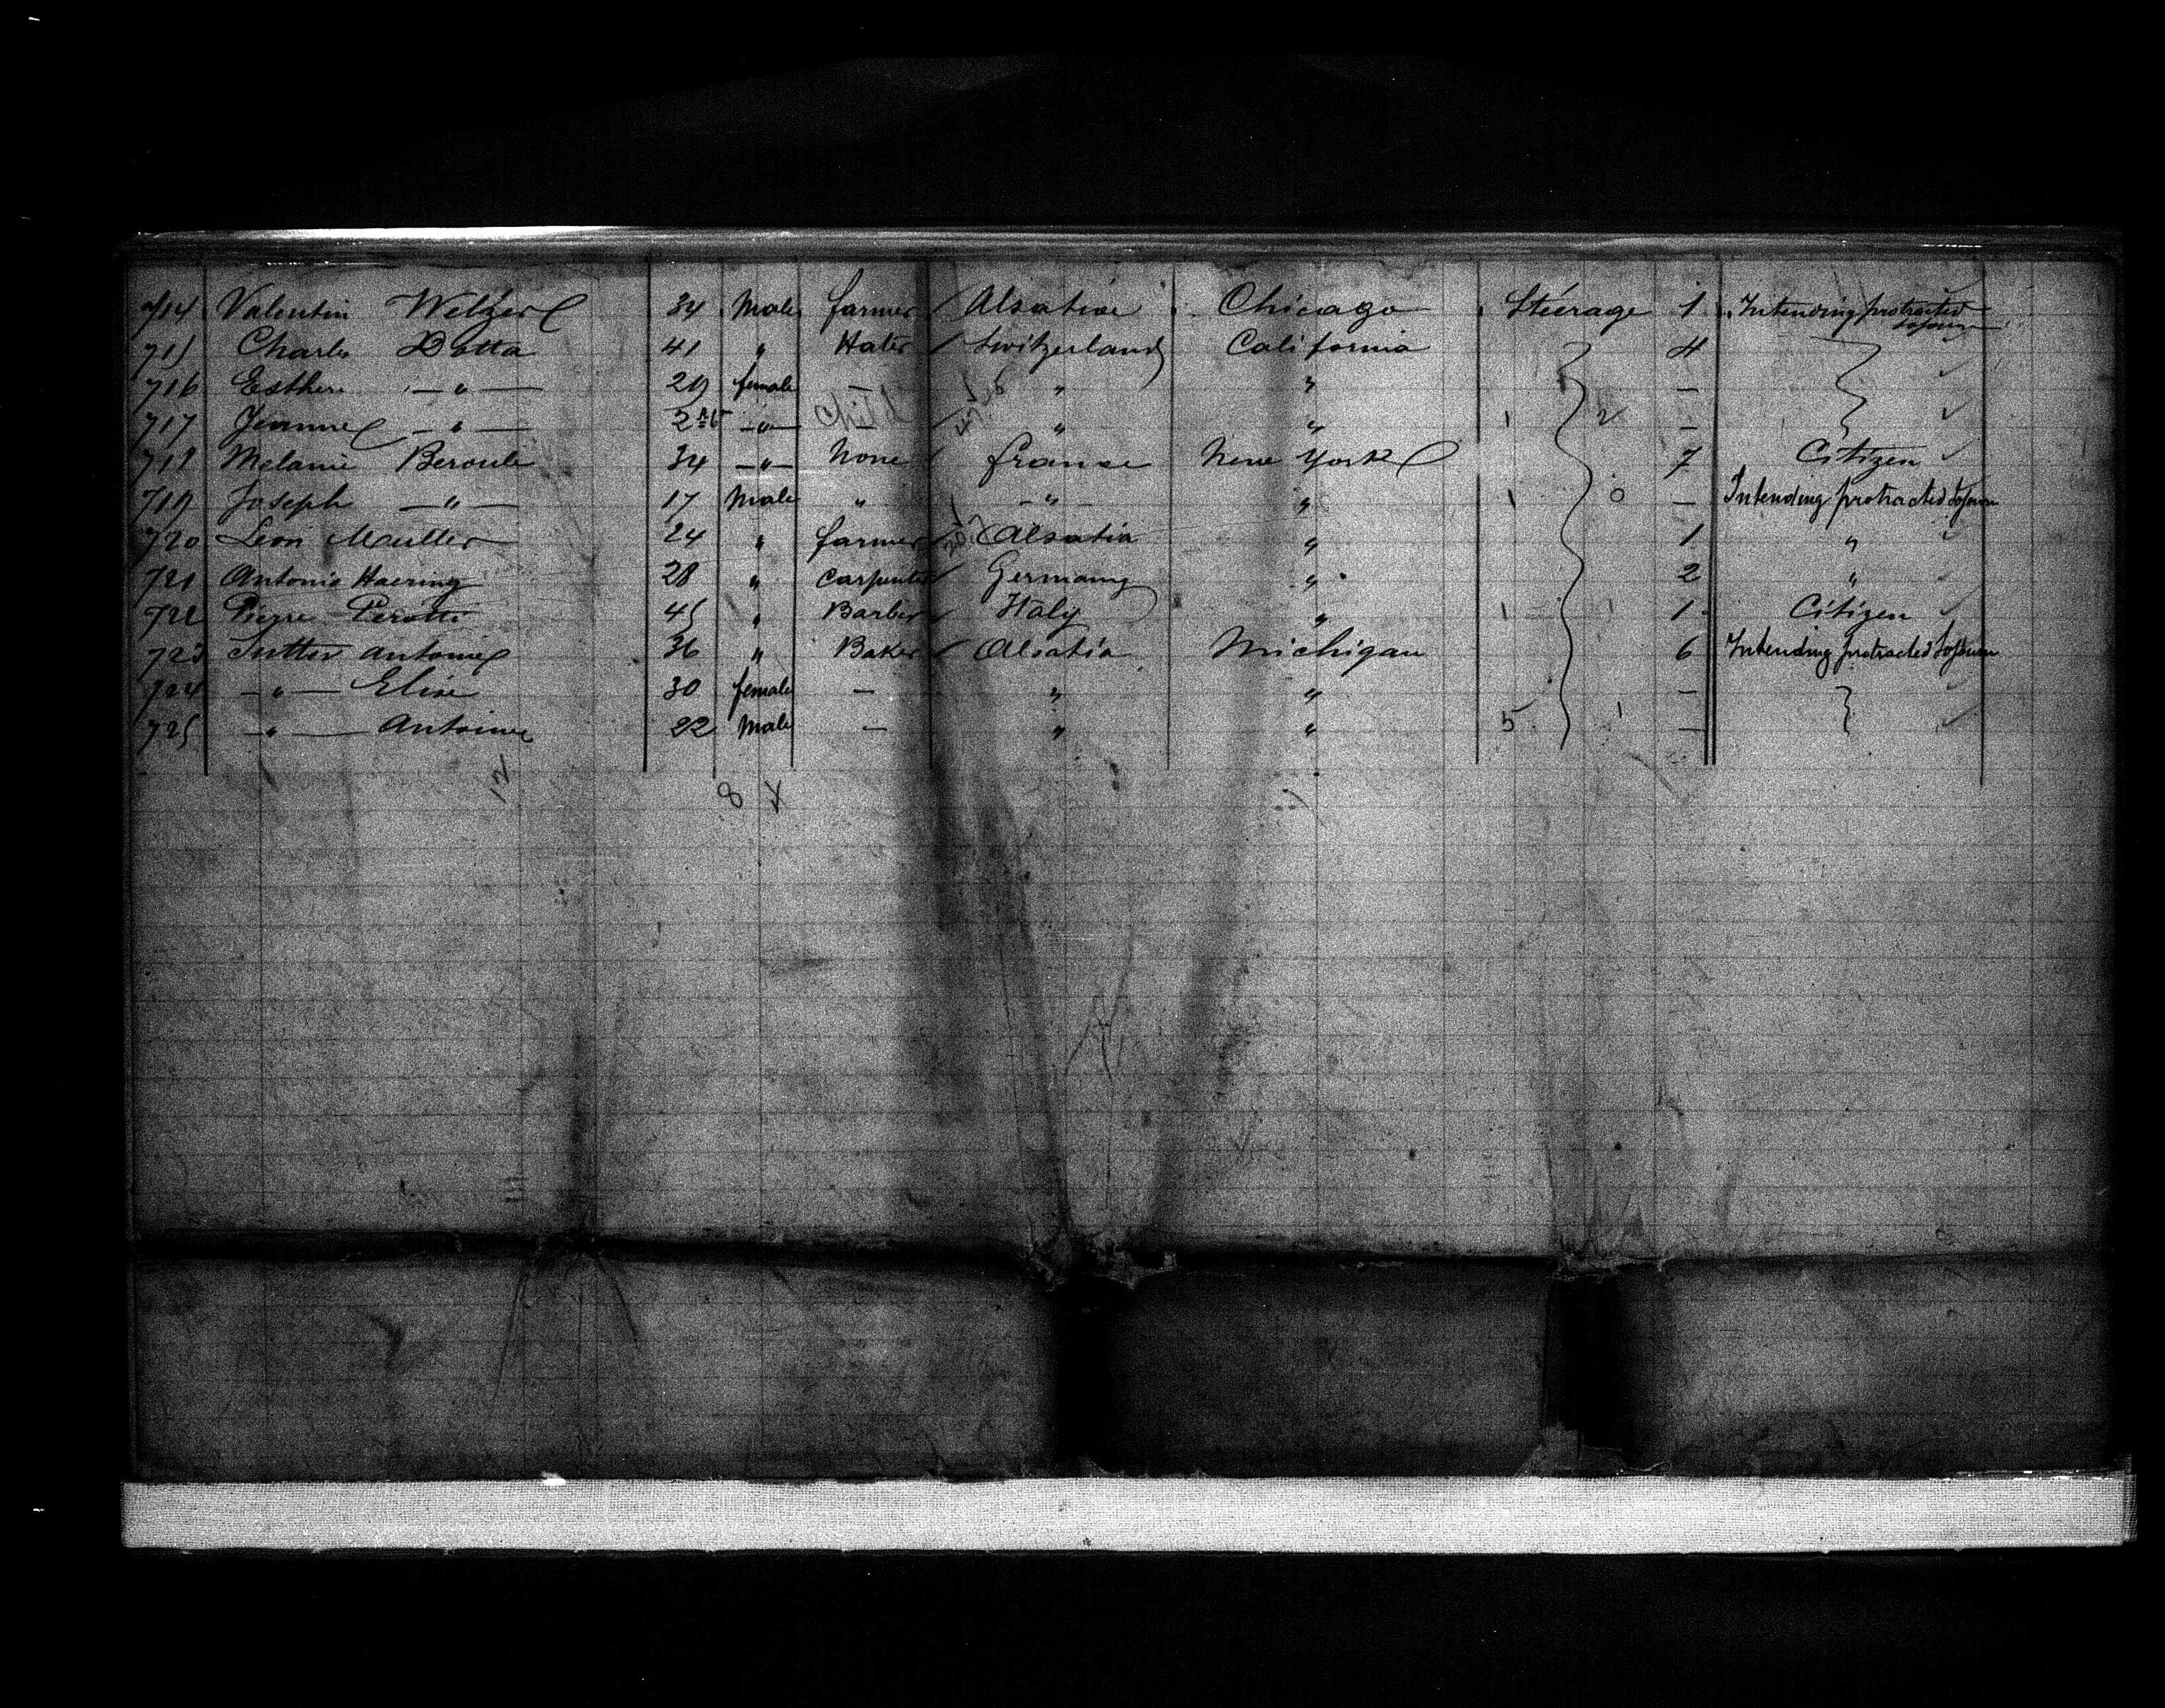 714 Valentin Welzer 34 Male farmer Alsatia Chicago Steerage 1 Intending protracted sojourn
715 Charles Dotta 41 " Hater Switzerland California 4
716 Esther — " — 29 female — " " —
717 Jeanne — " — 2 — " — child " " 1 2 —
718 Melanie Beroule 34 — " — None france New York 7 Citizen
719 Joseph — " — 17 Male " — " — " 1 0 — Intending protracted Sojourn
720 Leon Muller 24 " farmer Alsatia " 1 "
721 Antonio Haering 28 " Carpenter Germany " 2 "
722 Pierre Perotti 45 " Barber Italy " 1 1 1 Citizen
723 Sutter Antoine 36 " Baker Alsatia Michigan 6 Intending protracted Sojourn
724 — " — Elise 30 female — " " —
725 — " — Antoine 22 Male — " " 5 1 —
12 8 4